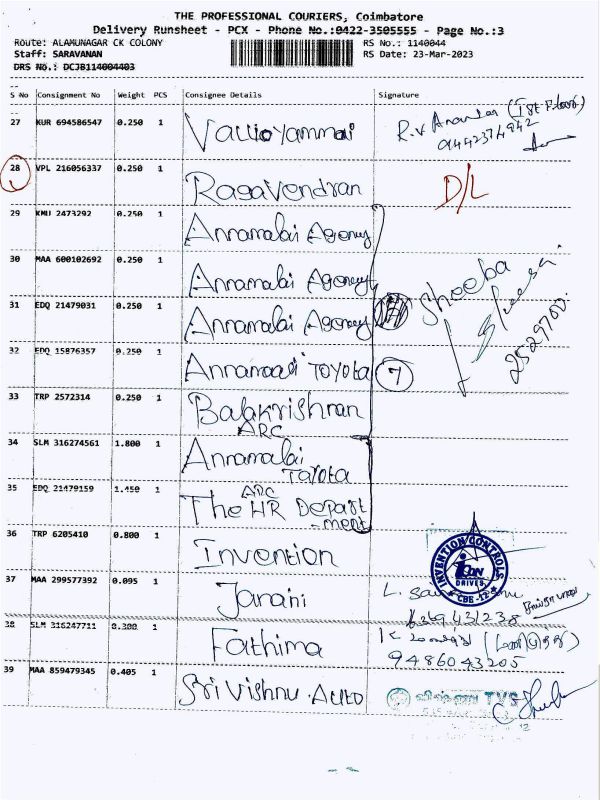 THE PROFESSIONAL COURIERS, Coimbatore
Delivery Runsheet - PCX - Phone No.:0422-3505555 - Page No.:3
Route: ALAMUNAGAR CK COLONY RS No.: 1140044
Staff: SARAVANAN RS Date: 23-Mar-2023
DRS No.: DCJB114004403
S No Consignment No Weight PCS Consignee Details Signature
27 KUR 694586547 0.250 1 Vallioyammai
28 VPL 216056337 0.250 1 Ragavendran D/L
29 KMU 2473292 0.250 1 Annamalai Agency
30 MAA 600102692 0.250 1 Annamalai Agency Sheeba
31 EDQ 21479031 0.250 1 Annamalai Agency
2529700
32 EDQ 15876357 0.250 1 Annamaali Toyota 7
33 TRP 2572314 0.250 1 Balakrishnan
ARC
34 SLM 316274561 1.800 1 Annamalai
Tayota
ARC
35 EDQ 21479159 1.450 1 The HR Depart
-ment
36 TRP 6205410 0.800 1 Invention
INVENTION CONTROLS
DRIVES
CBE-12
37 MAA 299577392 0.095 1 Janani
38 SLM 316247711 0.300 1 Fathima
9486043205
39 MAA 859479345 0.405 1 Sri Vishnu.Auto
TVS